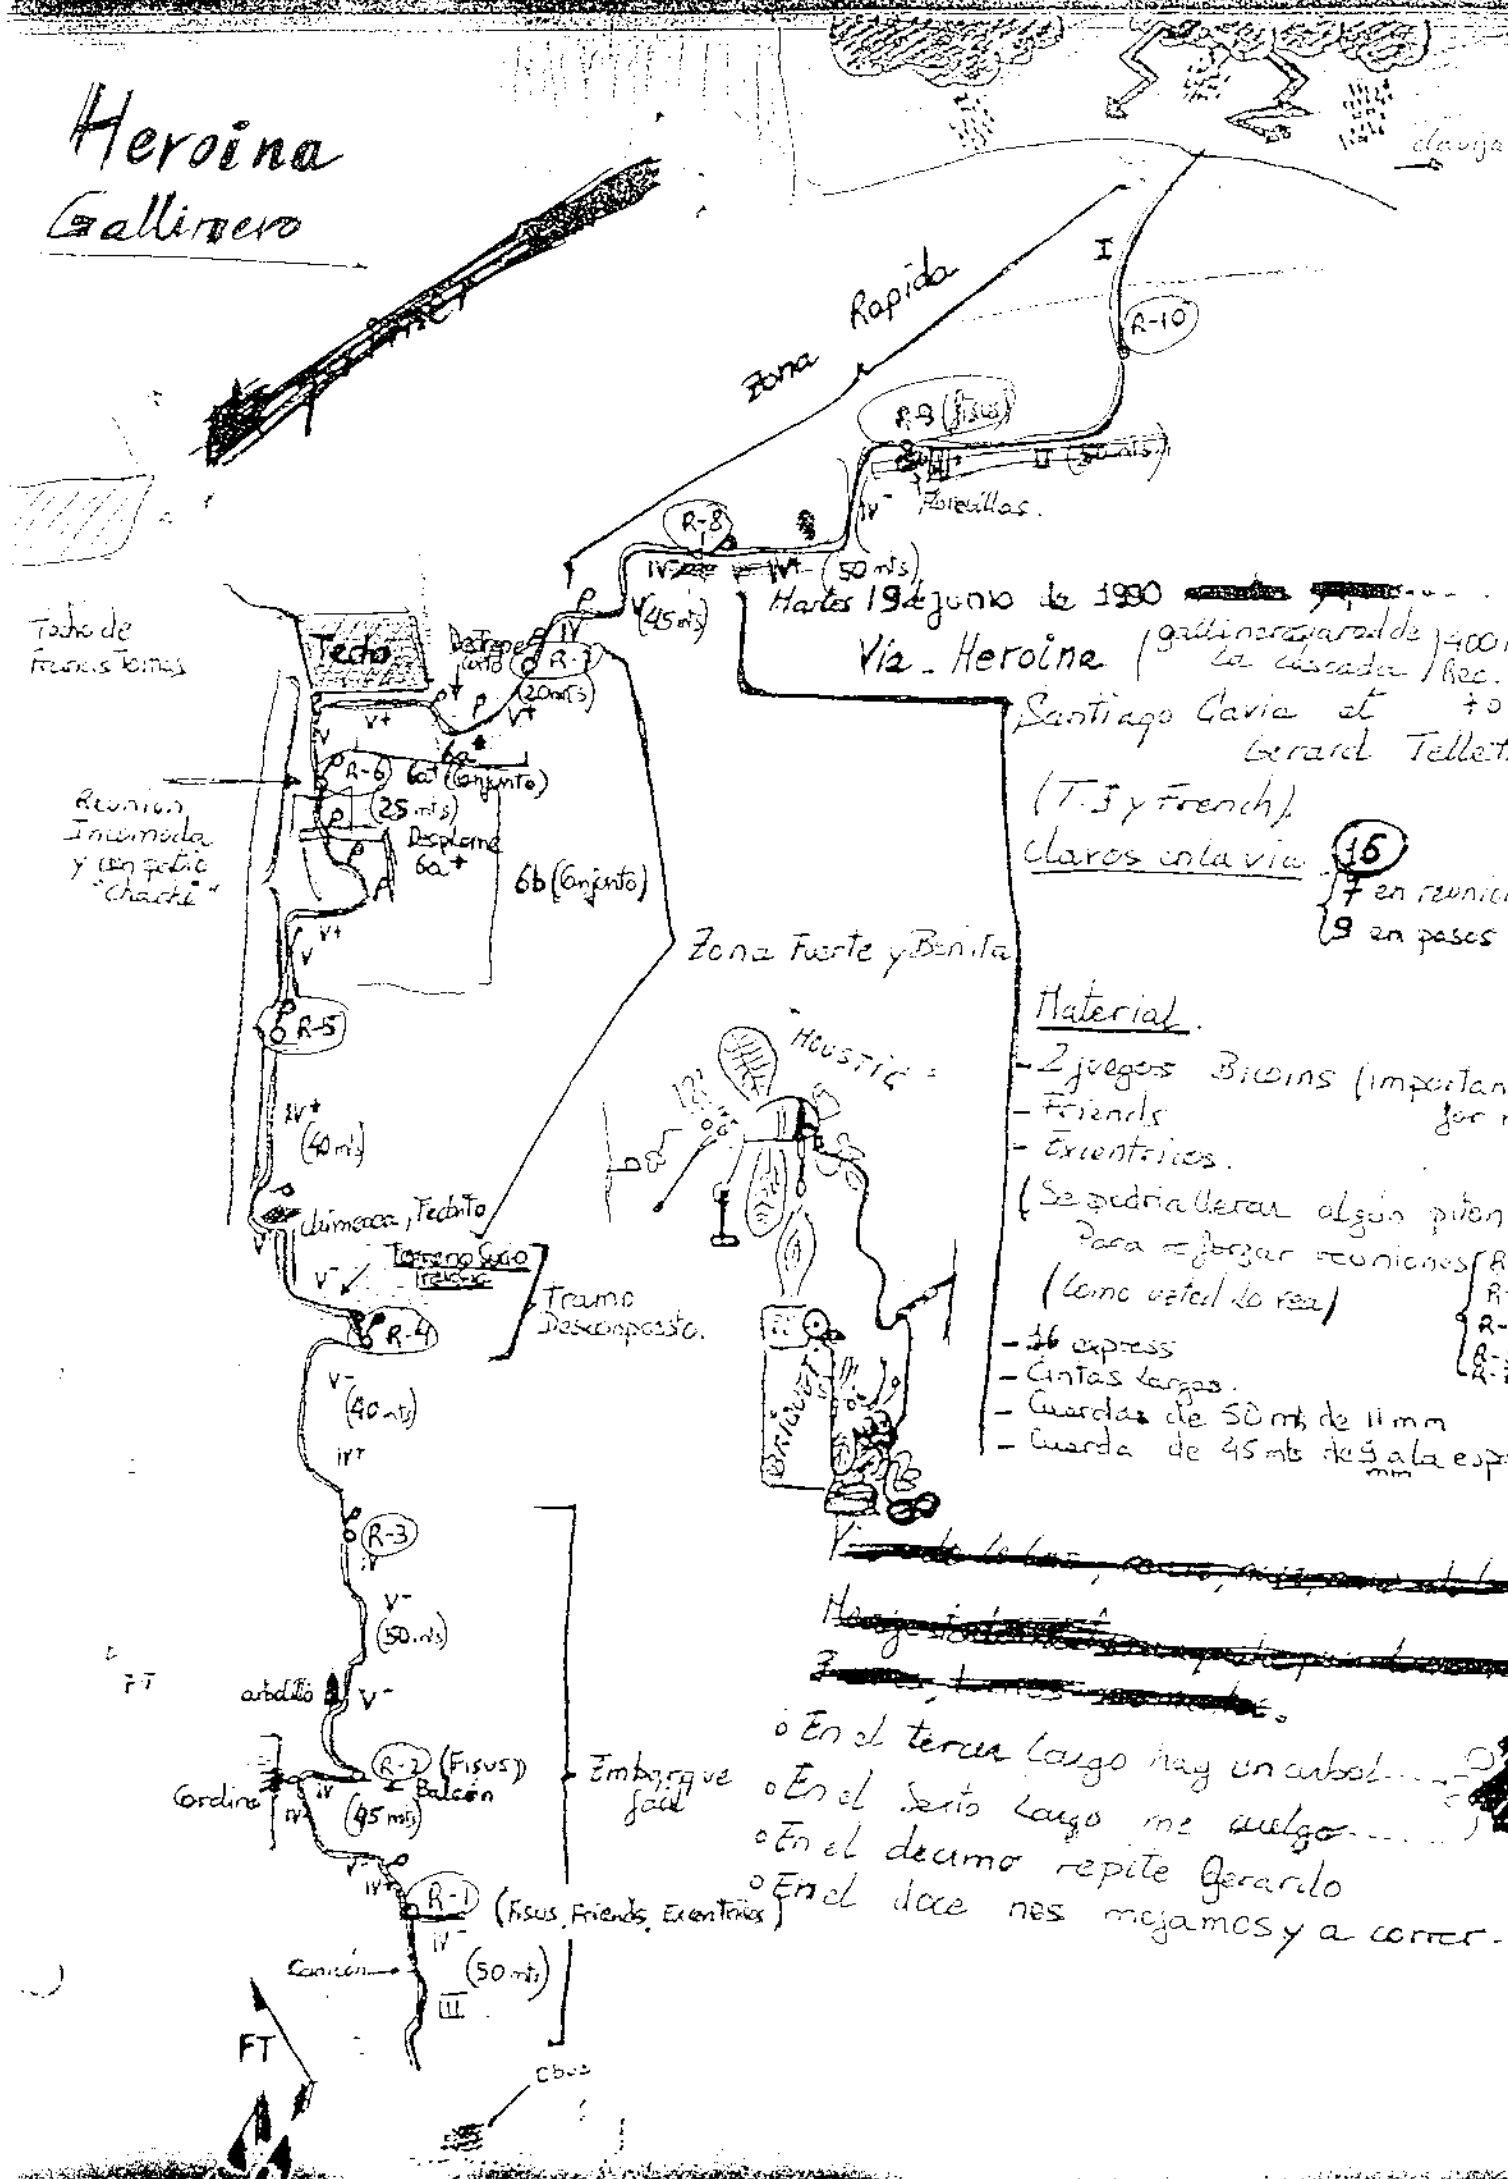 Heroina
Gallinero
clavija
Zona Rapida
I
R-10
R-9 (fisus)
II (50 mts.)
Horquillas.
IV-
R-8
IV
IV+ (50 mts)
V (45 mts)
Techo de
Francis Tomas
Techo
Destrepe
corto
IV
R-7
(20 mts)
V+
V+
V
6a+
R-6
6a+ (Conjunto)
(25 mts)
Desplome
6a+
6b (Conjunto)
Reunion
Incomoda
y con patio
"Chachi"
V+
V
R-5
Zona Fuerte y Bonita
IV+
(40 mts)
Chimenea, Techito
V
V-
Terreno Sucio
R-4
Tramo
Descompuesto.
V-
(40 mts)
IV+
R-3
IV
V-
(50 mts)
arbolito
V-
R-2 (Fisus)
Balcón
IV
Cordino
IV
(45 mts)
Embarque
facil
V-
IV+
R-1
(Fisus, Friends, Excentricos)
IV-
(50 mts)
III
FT
Martes 19 de junio de 1990
Via - Heroina (gallinero, pared de
la cascada) 400
Rec.
Santiago Gavia et
Gerard
(T.J y French)
Clavos en la via 16
7 en
9 en pasos
Material.
- 2 juegos Bicoins (importan
- Friends
- Excentricos.
(Se podria llevar algún piton
Para reforzar reuniones
(Como usted lo vea)
- 16 express
- Cintas largas.
- Cuerdas de 50 mts de 11 mm
- Cuerda de 45 mts de 9 a la
mm
"MOUSTIC"
BRIQUET
o En el tercer largo hay un arbol....
o En el Sexto largo me cuelgo......
o En el decimo repite Gerardo
o En el doce nos mojamos y a correr.